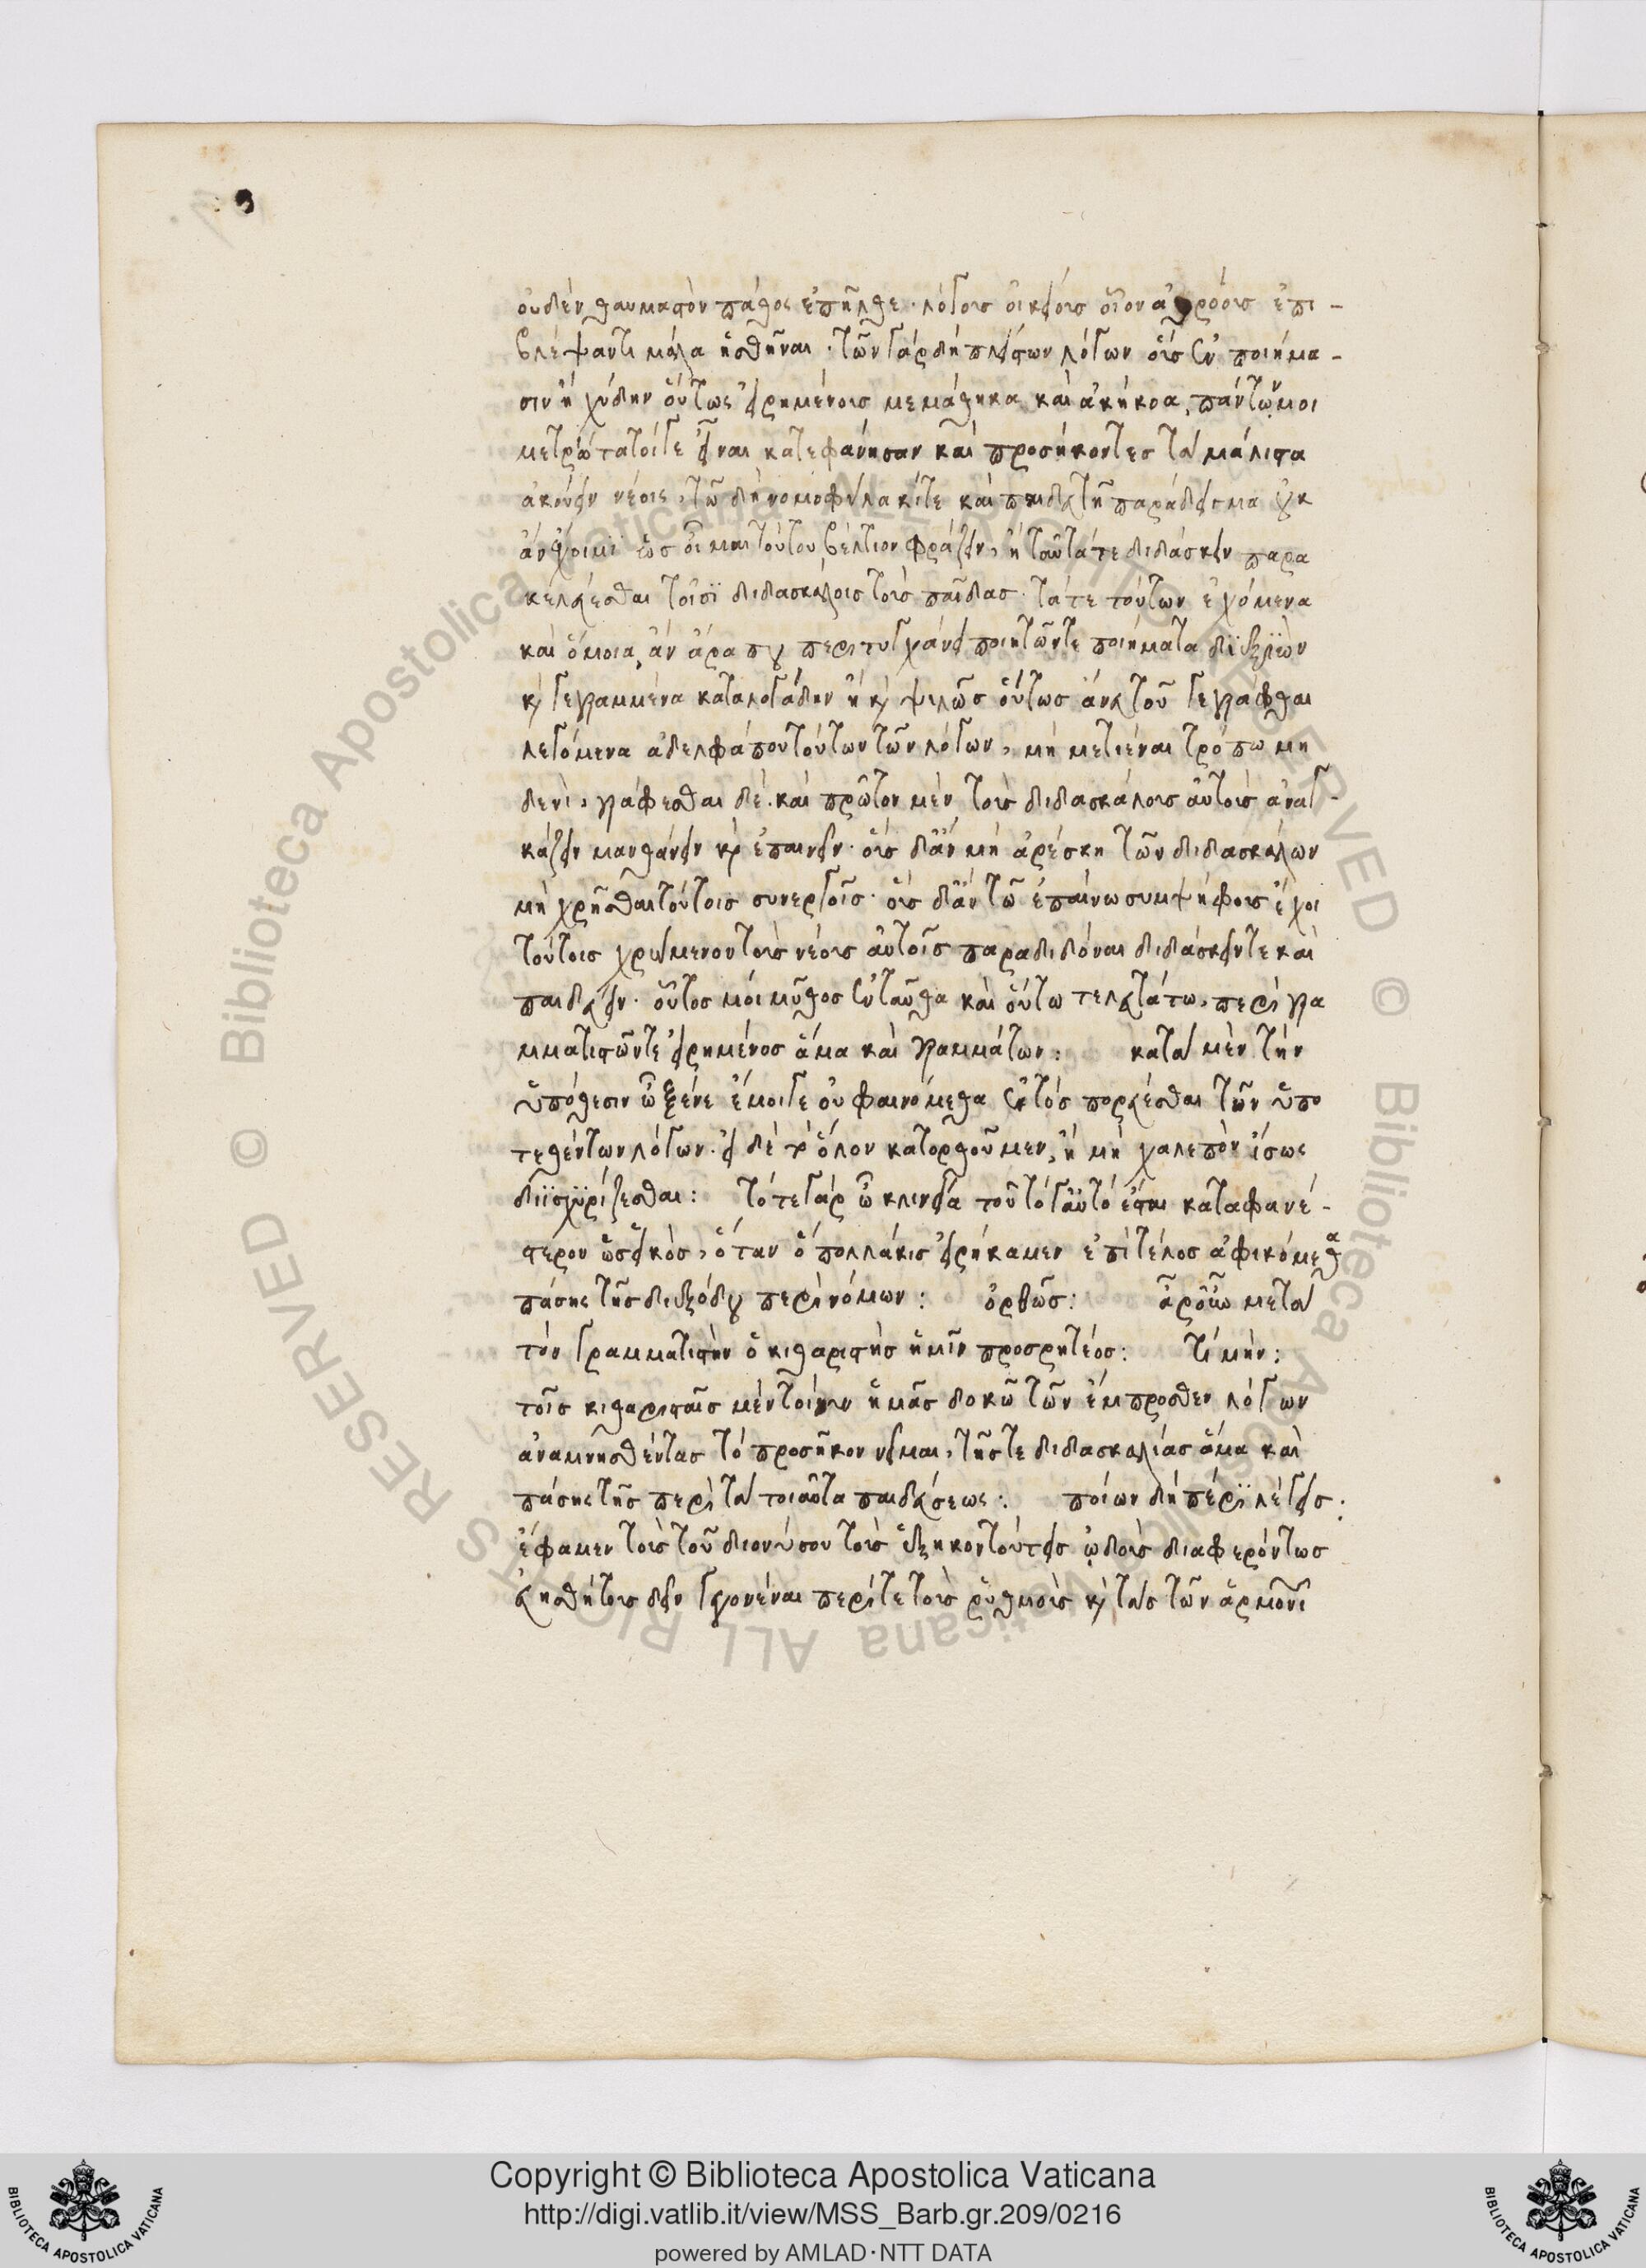 οὐδὲν θαυμαστὸν πάθος ἐπῆλθε· λόγοις οἰκείοις οἷον ἀθρόοις ἐπι-
βλέψαντι μάλα ἡσθῆναι· τῶν γὰρ δὴ πλείστων λόγων οἷς ἐν ποιήμα-
σιν ἢ χύδην οὕτως εἰρημένοις μεμάθηκα καὶ ἀκήκοα, πάντων μοι
μετριώτατοί γε εἶναι κατεφάνησαν καὶ προσήκοντες τὰ μάλιστα
ἀκούειν νέοις, τῶ δὴ νομοφύλακί τε καὶ παιδευτῆ παράδειγμα οὐκ
ἂν ἔχοιμι ὡς οἶμαι τούτου βέλτιον φράζειν, ἢ ταῦτά τε διδάσκειν παρα
κελεύεσθαι τοῖσι διδασκάλοις τοὺς παῖδας· τά τε τούτων ἐχόμενα
καὶ ὅμοια, ἂν ἄρα που περιτυγχάνει ποιητῶν τε ποιήματα διεξιὼν
καὶ γεγραμμένα καταλογάδην ἢ καὶ ψιλῶς οὕτως ἄνευ τοῦ γεγράφθαι
λεγόμενα ἀδελφά που τούτων τῶν λόγων, μὴ μετιέναι τρόπω μη
δενὶ, γράφεσθαι δέ. καὶ πρῶτον μὲν τοὺς διδασκάλους αὐτοὺς ἀναγ-
κάζειν μανθάνειν καὶ ἐπαινεῖν· οὓς δ' ἂν μὴ ἀρέσκη τῶν διδασκάλων
μὴ χρῆσθαι τούτοις συνεργοῖς· οὓς δ' ἂν τῶ ἐπαίνω συμψήφους ἔχοι
τούτοις χρώμενον τοὺς νέους αὐτοῖς παραδιδόναι διδάσκειν τε καὶ
παιδεύειν· οὗτος μοι μῦθος ἐνταῦθα καὶ οὕτω τελευτάτω, περὶ γρα
μματιστῶν τε εἰρημένος ἅμα καὶ γραμμάτων: κατὰ μὲν τὴν
ὑπόθεσιν ὦ ξένε ἔμοιγε οὐ φαινόμεθα ἐκτὸς πορεύεσθαι τῶν ὑπο
τεθέντων λόγων· εἰ δὲ τὸ ὅλον κατορθοῦμεν, ἢ μὴ χαλεπὸν ἴσως
διϊσχυρίζεσθαι: τότε γὰρ ὦ κλεινία τοῦτό γ' αὐτὸ ἔσται καταφανέ-
στερον ὡς εἰκὸς, ὅταν ὃ πολλάκις εἰρήκαμεν ἐπὶ τέλος ἀφικόμεθα
πάσης τῆς διεξόδου περὶ νόμων: ὀρθῶς: ἆρ' οὖν μετὰ
τὸν γραμματιστὴν ὁ κιθαριστὴς ἡμῖν προσρητέος: τί μήν:
τοῖς κιθαρισταῖς μὲν τοίνυν ἡμᾶς δοκῶ τῶν ἔμπροσθεν λόγων
ἀναμνησθέντας τὸ προσῆκον νεῖμαι, τῆς τε διδασκαλίας ἅμα καὶ
πάσης τῆς περὶ τὰ τοιαῦτα παιδεύσεως: ποίων δὴ πέρι λέγεις;
ἔφαμεν τοὺς τοῦ διονύσου τοὺς ἑξηκοντούτεις ᾠδοὺς διαφερόντως
εὐαισθήτους δεῖν γεγονέναι περί τε τοὺς ῥυθμοὺς καὶ τὰς τῶν ἁρμονι